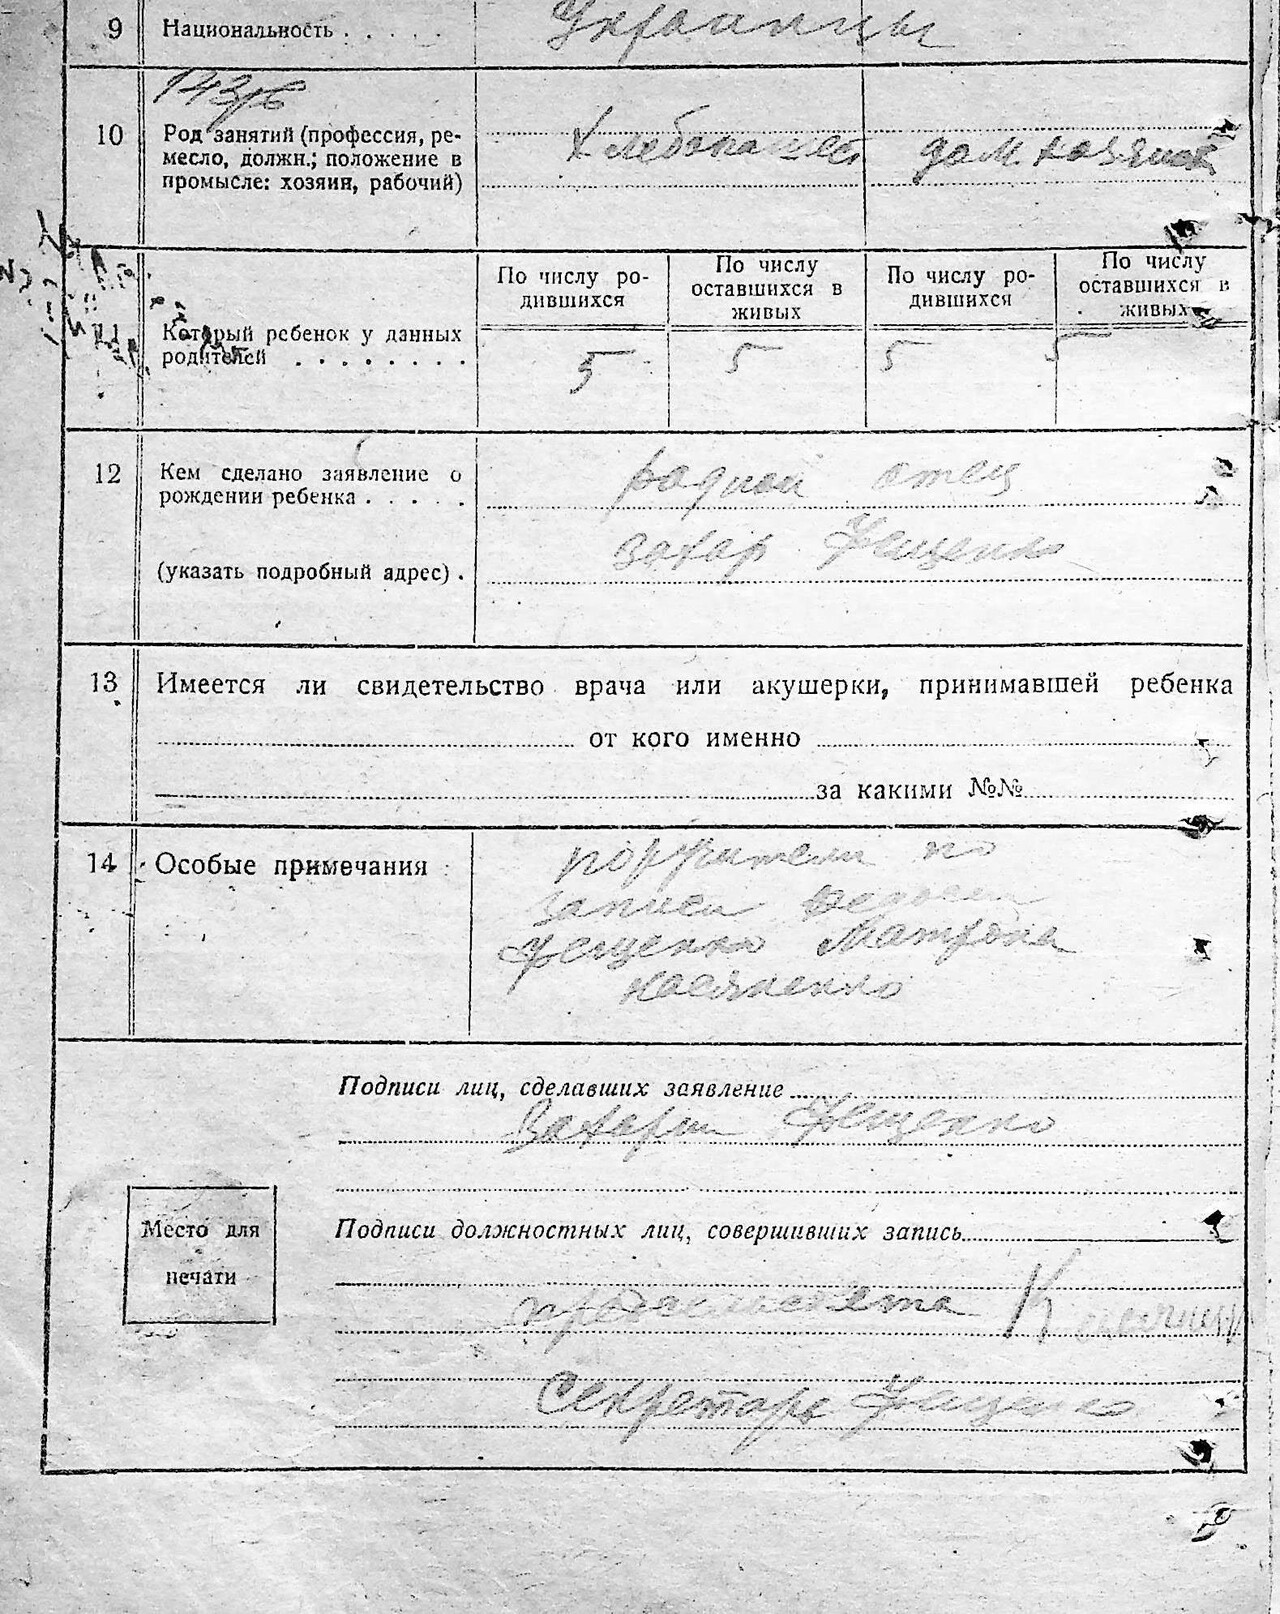 9 Национальность . . . . . Украинцы
143/6
10 Род занятий (профессия, ре-
месло, должн.; положение в
промысле: хозяин, рабочий)
Хлебопашец дом хозяйка
По числу ро-
дившихся
По числу
оставшихся в
живых
По числу ро-
дившихся
По числу
оставшихся в
живых
Который ребенок у данных
родителей . . . . . . . .
5 5 5 5
12 Кем сделано заявление о
рождении ребенка . . . . .
родной отец
Захар Фещенко
(указать подробный адрес) .
13 Имеется ли свидетельство врача или акушерки, принимавшей ребенка
от кого именно
за какими №№
14 Особые примечания
поручители по
записи Федосий
Фещенко Матрона
Касяненко
Подписи лиц, сделавших заявление
Захарий Фещенко
Подписи должностных лиц, совершивших запись
Место для
печати
предсельсовета
Секретарь Фещенко